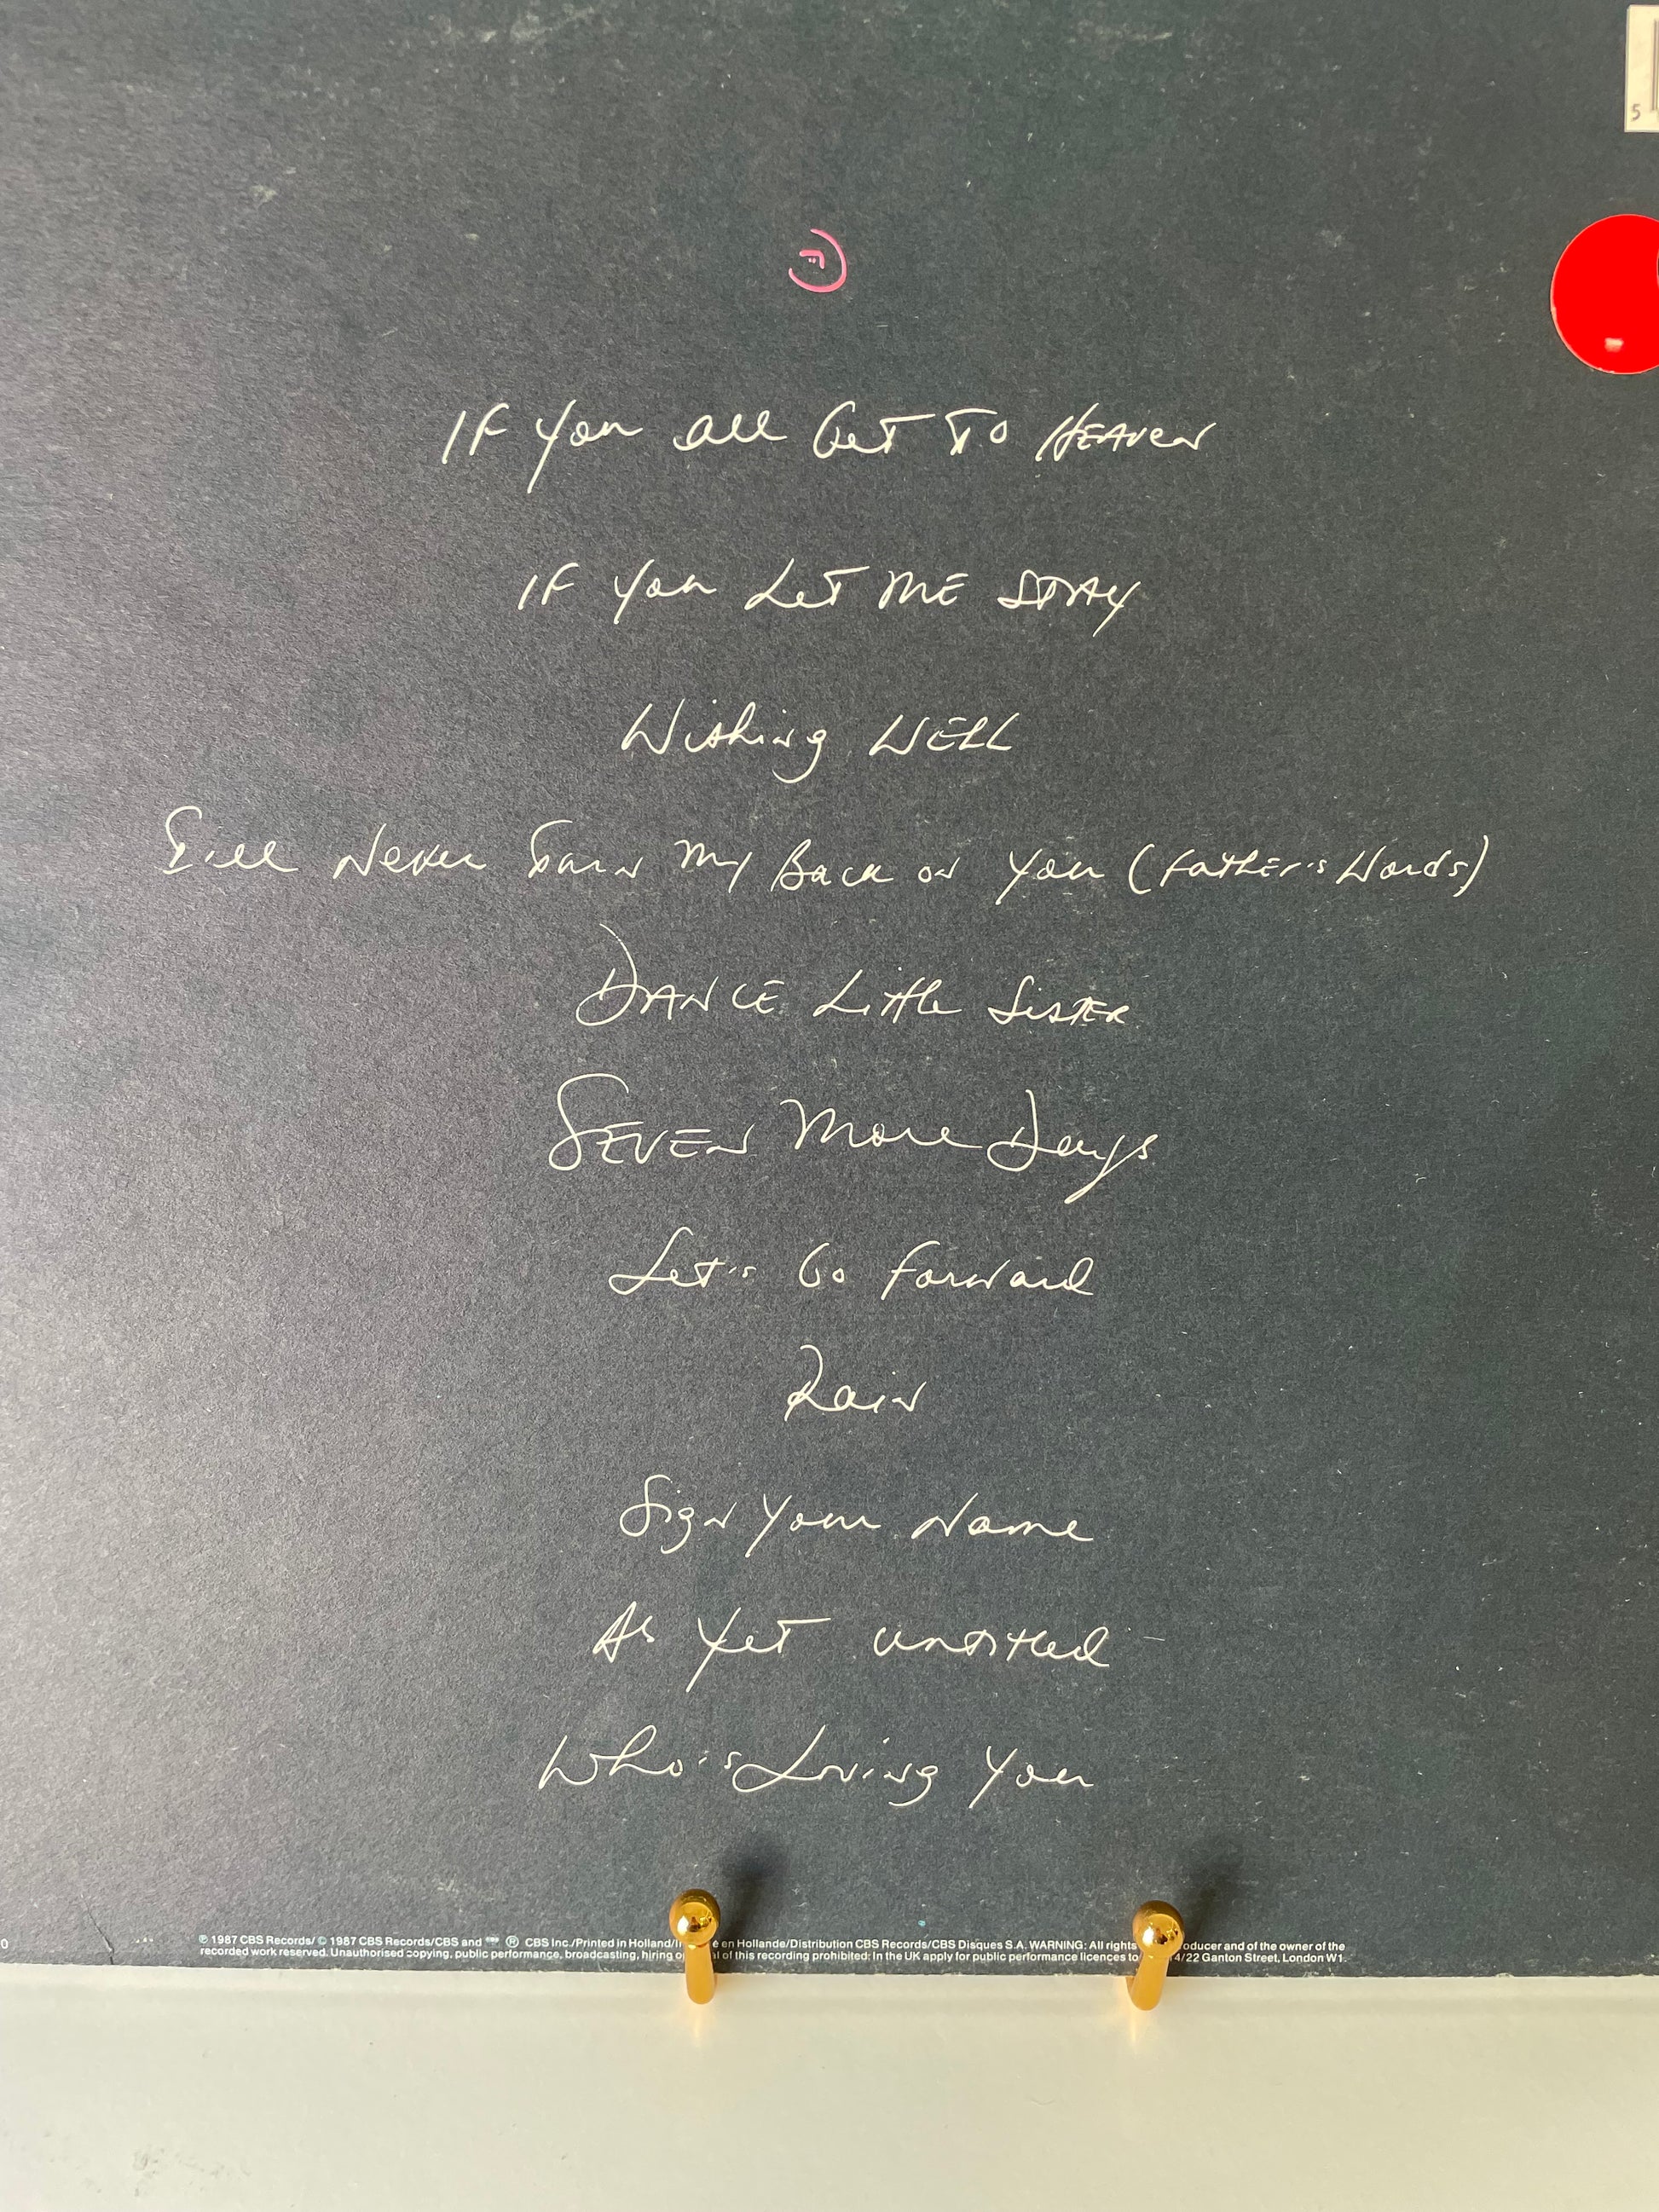 5
IF You all Get To HEAVEN
IF You Let ME STAY
Wishing WELL
I'll Never Turn My Back on You (Father's Words)
DANCE Little SISTER
SEVEN More Days
Let's Go Forward
Rain
Sign Your Name
As Yet Untitled
Who's Loving You
0
℗ 1987 CBS Records/ © 1987 CBS Records/CBS and ® CBS Inc./Printed in Holland/ en Hollande/Distribution CBS Records/CBS Disques S.A. WARNING: All rights and of the owner of the
recorded work reserved. Unauthorised copying, public performance, broadcasting, hiring of this recording prohibited: In the UK apply for public performance licences to 4/22 Ganton Street, London W1.